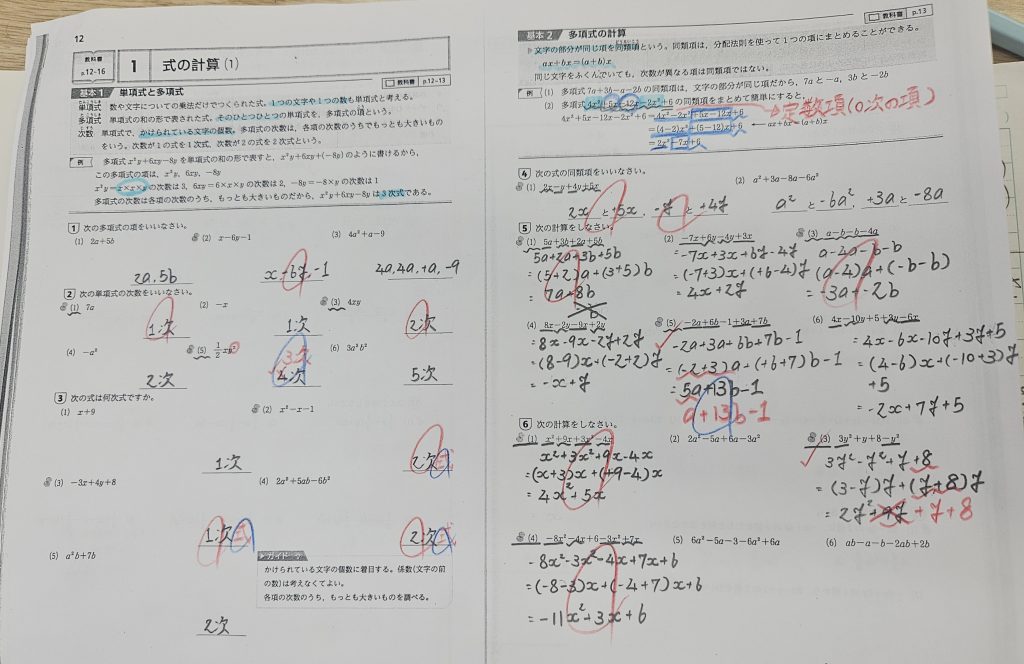 12
教科書 p.12-16
1 式の計算(1)
基本1 単項式と多項式
教科書 p.12-13
単項式 数や文字についての乗法だけでつくられた式。1つの文字や1つの数も単項式と考える。
多項式 単項式の和の形で表された式。そのひとつひとつの単項式を、多項式の項という。
次数 単項式で、かけられている文字の個数。多項式の次数は、各項の次数のうちでもっとも大きいもの
をいう。次数が1の式を1次式、次数が2の式を2次式という。
例 多項式 x²y+6xy-8y を単項式の和の形で表すと、x²y+6xy+(-8y) のように書けるから、
この多項式の項は、x²y, 6xy, -8y
x²y=x×x×y の次数は3, 6xy=6×x×y の次数は2, -8y=-8×y の次数は1
多項式の次数は各項の次数のうち、もっとも大きいものだから、x²y+6xy-8y は3次式である。
1 次の多項式の項をいいなさい。
(1) 2a+5b (2) x-6y-1 (3) 4a²+a-9
2a, 5b x-6y,-1 4a,4a,+a,-9
2 次の単項式の次数をいいなさい。
(1) 7a (2) -x (3) 4xy
1次 1次 2次
(4) -a² (5) 1/2xy² (6) 3a²b³
3次
2次 4次 5次
3 次の式は何次式ですか。
(1) x+9 (2) x²-x-1
1次 2次式
(3) -3x+4y+8 (4) 2a²+5ab-6b²
1次式 2次式
(5) a²b+7b
ガイド
かけられている文字の個数に着目する。係数(文字の前
の数)は考えなくてよい。
各項の次数のうち、もっとも大きいものを調べる。
2次
教科書 p.13
基本2 多項式の計算
文字の部分が同じ項を同類項という。同類項は、分配法則を使って1つの項にまとめることができる。
ax+bx=(a+b)x
同じ文字をふくんでいても、次数が異なる項は同類項ではない。
例 (1) 多項式 7a+3b-a-2b の同類項は、文字の部分が同じ項だから、7aと-a, 3bと-2b
(2) 多項式 4x²+5x-12x-2x²+6 の同類項をまとめて簡単にすると、
4x²+5x-12x-2x²+6=4x²-2x²+5x-12x+6 →定数項(0次の項)
=(4-2)x²+(5-12)x+6 ← ax+bx=(a+b)x
=2x²-7x+6
4 次の式の同類項をいいなさい。
(1) 2x-y+4y+5x (2) a²+3a-8a-6a²
2xと+5x, -yと+4y a²と-6a², +3aと-8a
5 次の計算をしなさい。
(1) 5a+3b+2a+5b (2) -7x+6y-4y+3x (3) a-b-b-4a
5a+2a+3b+5b =-7x+3x+6y-4y a-4a-b-b
=(5+2)a+(3+5)b =(-7+3)x+(+6-4)y (a-4)a+(-b-b)
=7a+8b =4x+2y =-3a+-2b
(4) 8x-2y-9x+2y (5) -2a+6b-1+3a+7b (6) 4x-10y+5+3y-6x
8x-9x-2y+2y -2a+3a+6b+7b-1 =4x-6x-10y+3y+5
=(8-9)x+(-2+2)y =(-2+3)a+(+6+7)b-1 =(4-6)x+(-10+3)y
+5
=-x+y =5a+13b-1 =-2x+7y+5
a+13b-1
6 次の計算をしなさい。
(1) x²+9x+3x²-4x (2) 2a²-5a+6a-3a² (3) 3y²+y+8-y²
x²+3x²+9x-4x 3y²-y²+y+8
=(x+3)x+(+9-4)x =(3-y)y+(y+8)y
=4x²+5x =2y² +y+8
(4) -8x²-4x+6-3x²+7x (5) 6a²-5a-3-6a²+6a (6) ab-a-b-2ab+2b
-8x²-3x²-4x+7x+6
=(-8-3)x+(-4+7)x+6
=-11x²+3x+6